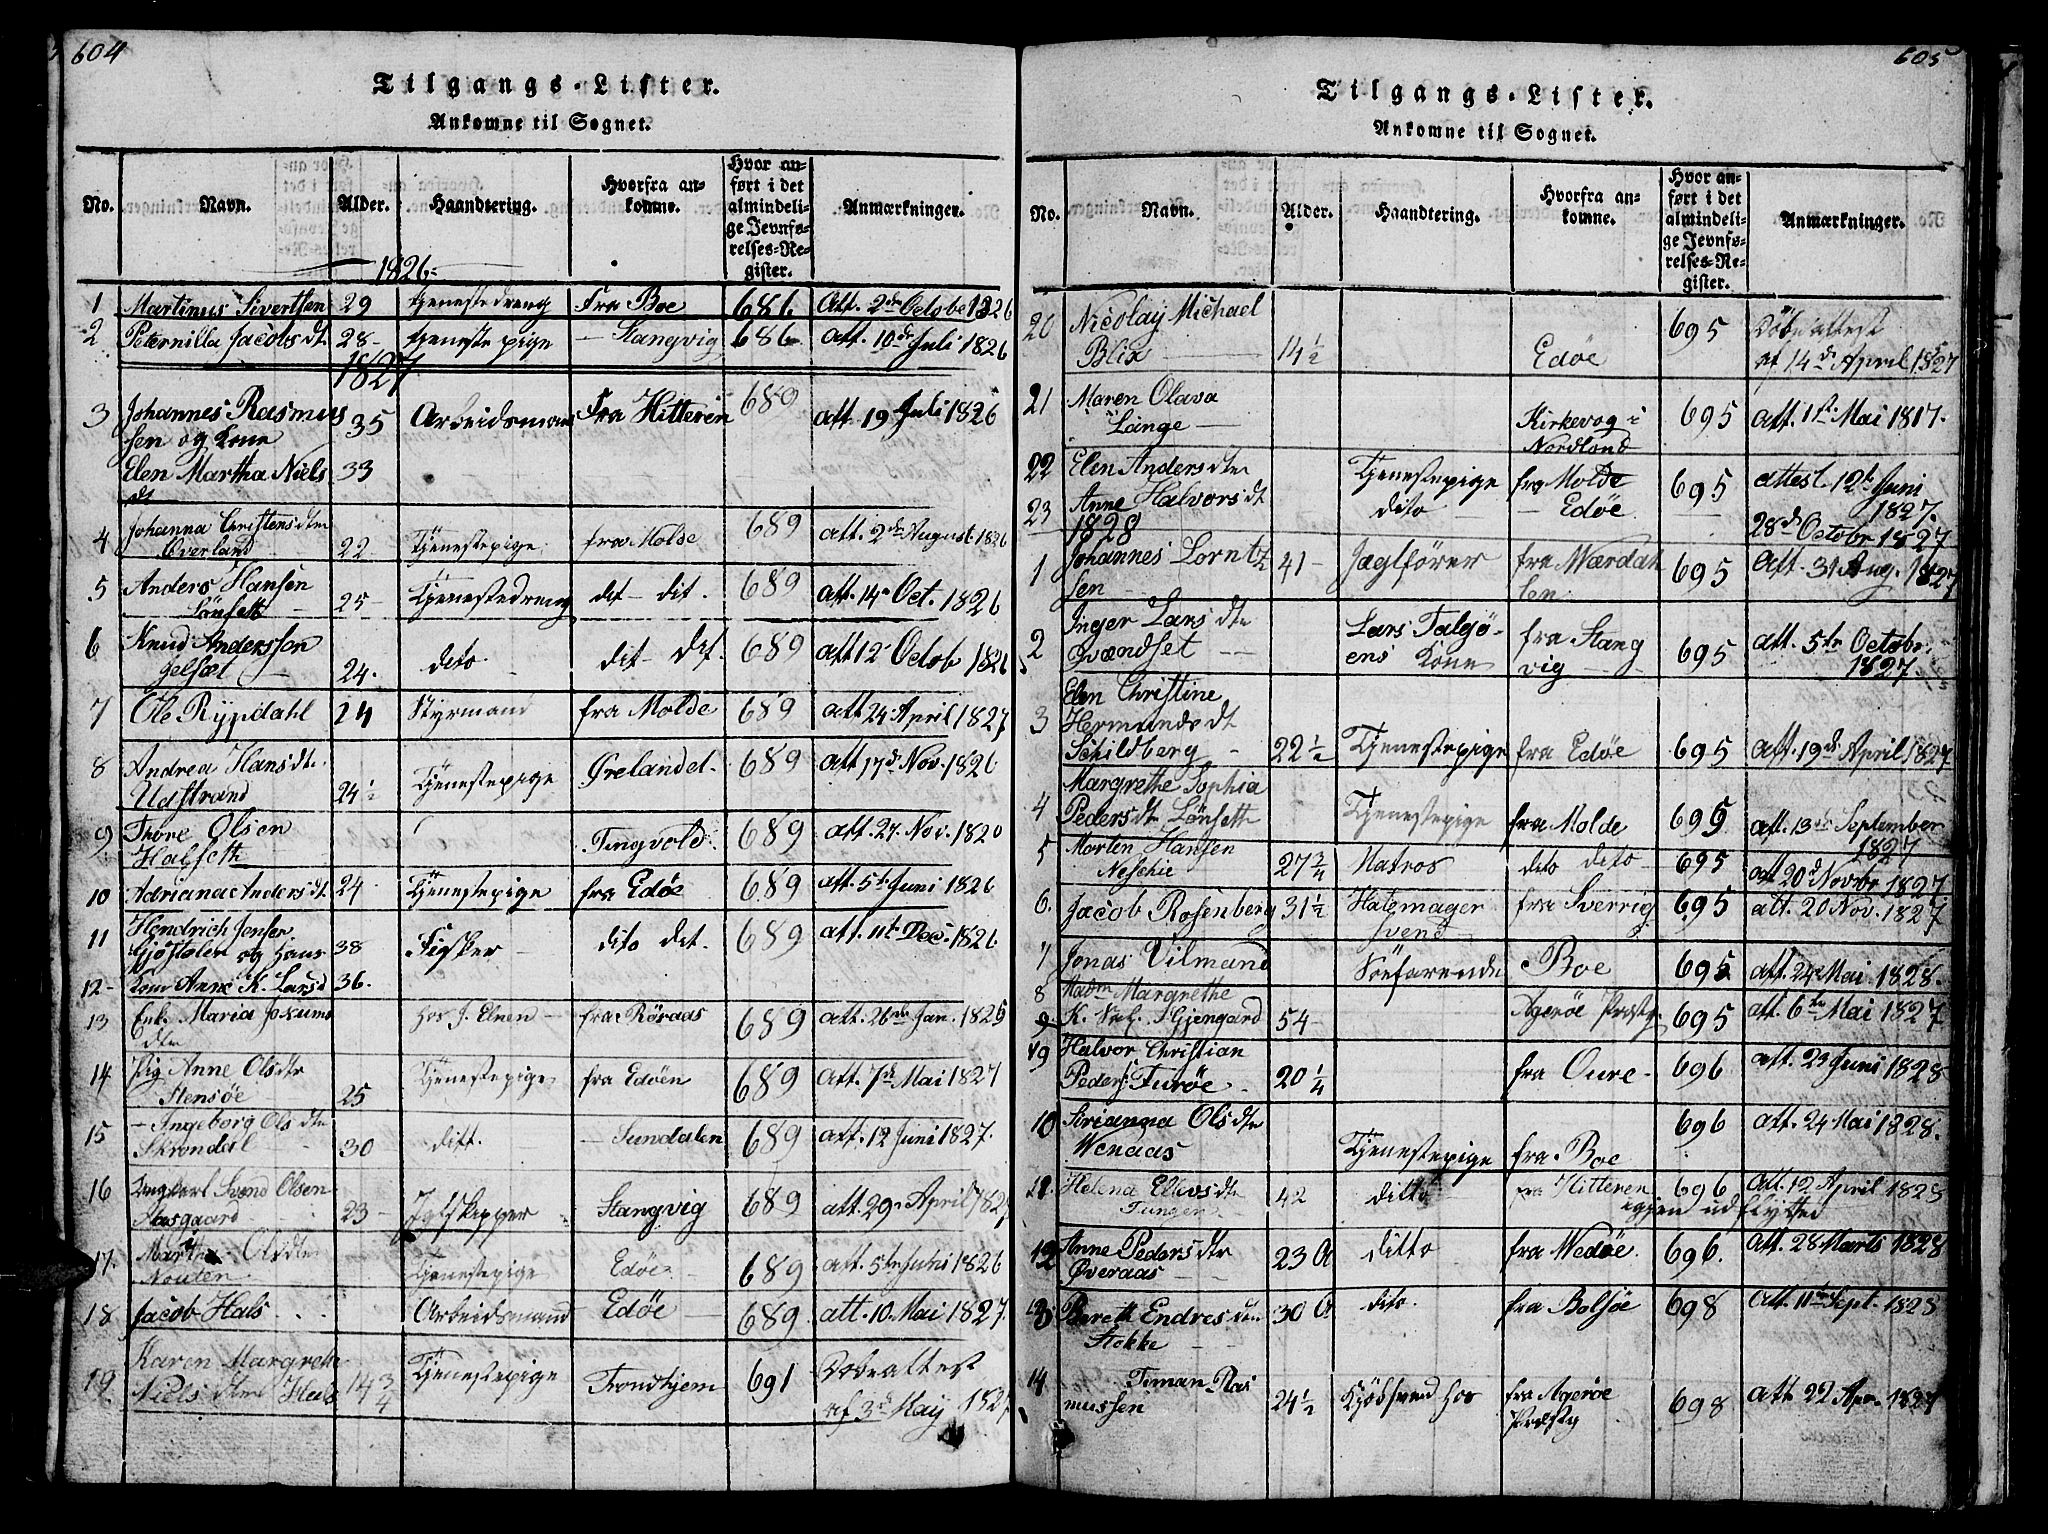 604
Tilgangs-Lister.
Ankomne til Sognet.
No. Navn. Alder. Haandtering. Hvorfra ankomne. Hvor anført i det almindelige Jevnførelses-Register. Anmærkninger.
1826
1 Martinus Sivertsen 29 Tjenestedreng Fra Boe 686 Att. 2de Octobe 1826
2 Peternilla Jacobsdt 28 - tjeneste pige - Stangvig 686 att. 10de Juli 1826
1827
3 Johannes Rasmus 35 Arbeidsmand Fra Hitteren 689 att. 19 Juli 1826
sen og Kone
Elen Martha Niels 33
dt
4 Johanna Christensdtr
Overland 22 Tjenestepige fra Molde 689 att. 2de August 1826
5 Anders Hansen
Lönseth 25 - Tjenestedreng det - dit. 689 att. 14 Oct. 1826
6 Knud Anderssen
Gelsæt 24. dito. dit - det. 689 att 12 Octob 1826
7 Ole Rypdahl 24 Styrmand fra Molde 689 att 24 April 1827
8 Andrea Hansdtr
Udstrand 24½ Tjenestepige Ørelandet. 689 att 17d Nov. 1826
9 Thore Olsen
Halseth Tingvold. 689 att. 27. Nov. 1820
10 Adriana Andersdt. 24. Tjenestepige fra Edøe 689 att. 5t Juni 1826
11 Hendrich Jensen
Gjøstølen og Hans 38 Fisker dito det. 689 att. 11t Dec. 1826
12 - Kone Anne K. Larsd 36.
13 Enk. Maria Joxums
dtr hos J. Elnen - fra Röraas 689 att. 26de Jan. 1825
14 Pig Anne Olsdtr
Stensøe 25 Tjenestepige fra Edöen 689 att. 7d Mai 1827
15 - Ingeborg Olsdtr
Skrondal 30 ditt. - Sundalen 689 att. 12 Juni 1827.
16 Svend Olsen
Aasgaard 23 - Stangvig 689 att. 29. April 1827
17. Martha Olsdtr
Tjenestepige Edöe - 689 att. 5te Juni 1826
18 Jacob Hals Arbeidsmand Edøe 689 att. 10. Mai 1827.
19 Karen Margrethe
Nielsdtr Hals 14¾ Tjenestepige Trondhjem 691 Dobeattest
af 3d May 1827
605
Tilgangs-Lister.
Ankomne til Sognet.
No. Navn. Alder. Haandtering. Hvorfra ankomne. Hvor anført i det almindelige Jevnførelses-Register. Anmærkninger.
20 Nicolay Michael
Blix 14½ Edöe 695 Döbeattest
af 14de April 1827
21 Maren Olava
Lange - Kirkevog i
Nordland 695 att. 1st Mai 1817.
22 Elen Andersdtr Tjenestepige fra Molde 695 attest 12t Juni
1827.
23 Anne Halvorsdt dito - Edöe 28d Octobr 1827
1828
1 Johannes Lorntz
sen 41 - Jaglförer fra Wærdah
len 695 att. 31 Aug. 1827
2 Inger Larsdtr
Qvændset - Lars Talgjö-
ens Kone fra Stang
vig 695 att. 5te Octobr.
1827.
3 Elen Christine
Hermundsdt
Schildberg - 22½ Tjenestepige fra Edöe 695 att. 19d April 1827
4 Margrethe Sophia
Pedersdtr Lönseth Tjenestepige fra Molde 695 att. 13de September
1827
5 Morten Hansen
27¾ Matros dito dito 695 att 20d Novbr 1827
6. Jacob Rosenberg 31½ Hatemager
svend fra Sverrig 695 att. 20 Nov. 1827
7 Jonas Vilmand Söefarende Boe 695 att. 24 Mai 1828.
8 Madm Margrethe
9. K. Gjengaard 54 - Agerøe Præstg. 695 att. 6te Mai 1827
9 Halvor Christian
Peders. Turöe - 20¼ fra Oure - 696 att. 23 Juni 1828
10 Sirianna Olsdtr
Wenaas Tjenestepige fra Boe 696 att. 24 Mai 1828.
11. Helena Ellevsdtr
Tungen 42 ditto fra Hitteren 696 att. 12 April 1828
igjen udflyttet
12 Anne Pedersdtr
Øveraas - 23 A ditto fra Wedöe. 696. att. 28 Marts 1828
13 Bereth Endresdtr
Stokke - 30 A dito. fra Bolsöe 698 att. 11te Sept. 1828
14 Timan Ras
mussen 24½ hos fra Ageröe
Præstg 698 att. 22 Apr. 1827